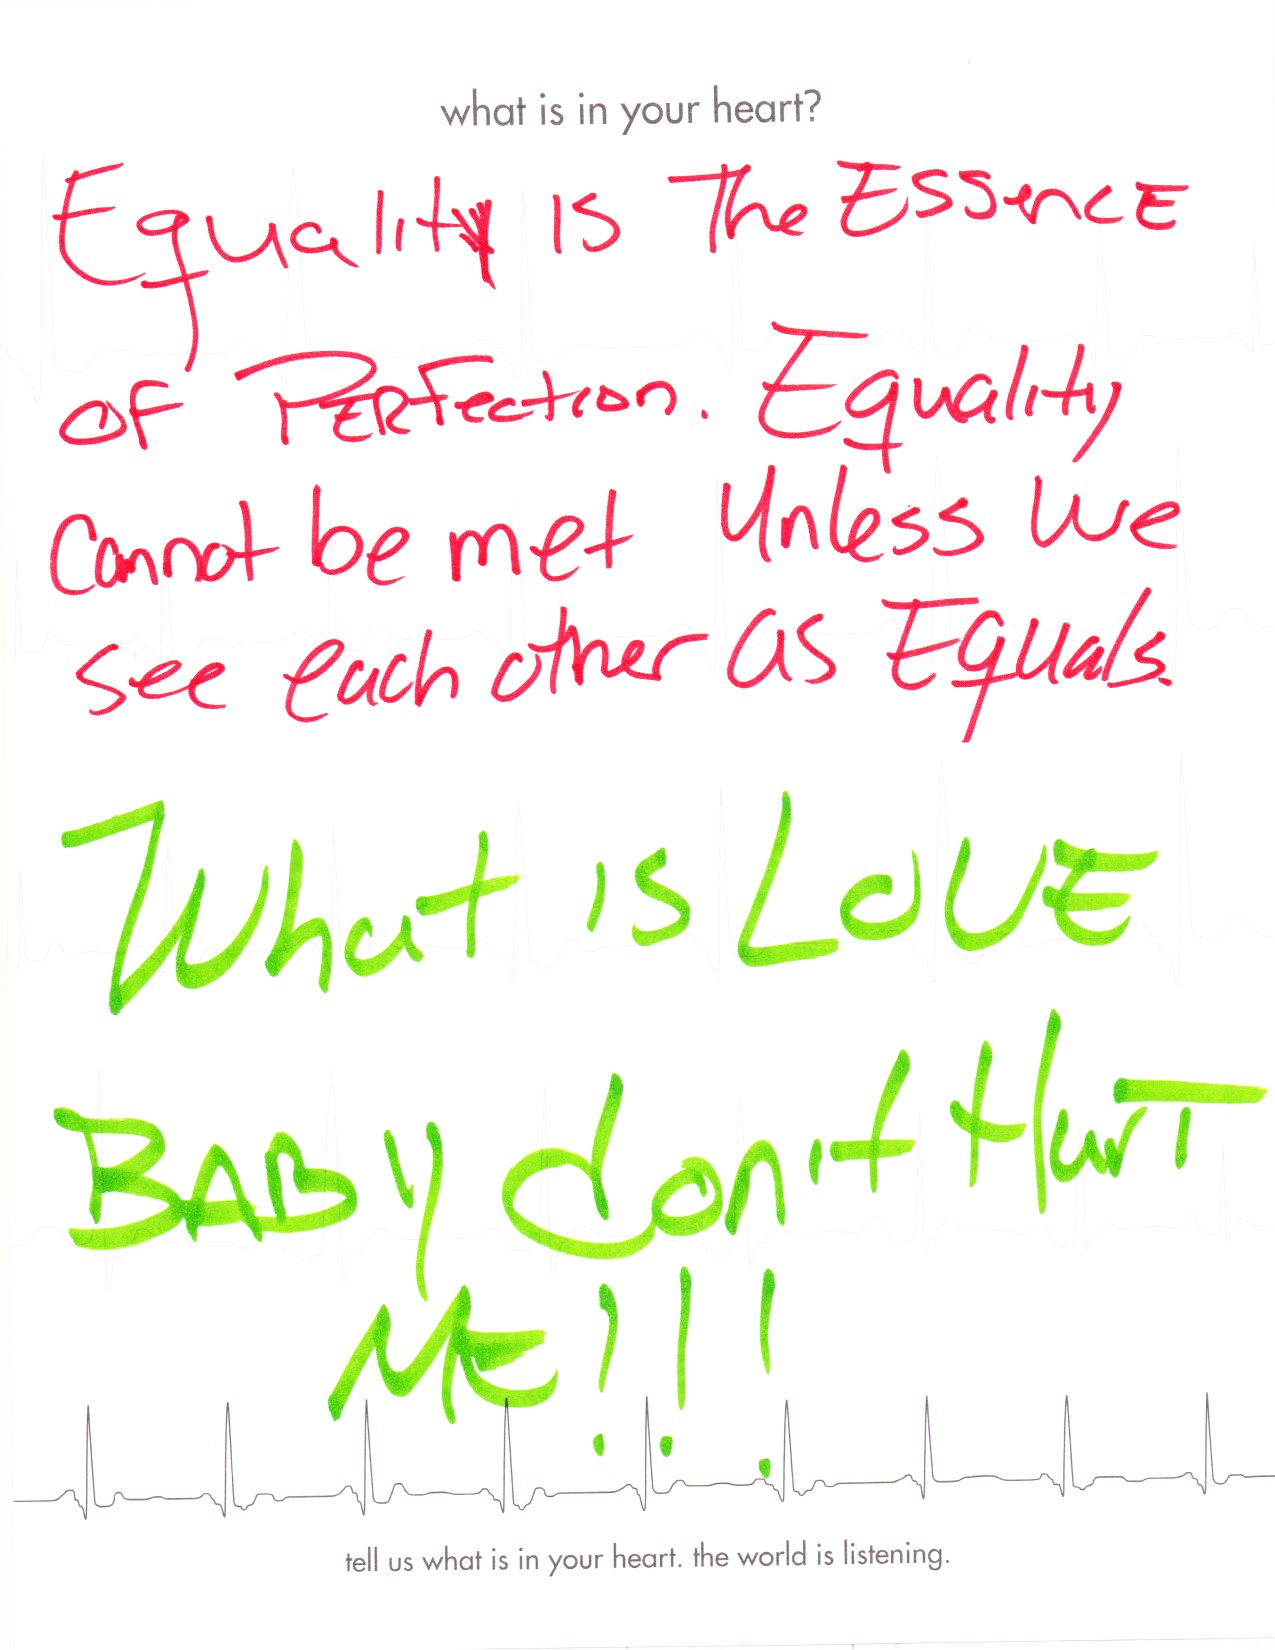 what is in your heart?
Equality is The ESSenCE
of PERFection. Equality
cannot be met Unless We
see each other as Equals.
What is LOVE
BABy don't Hurt
ME!!!
tell us what is in your heart. the world is listening.